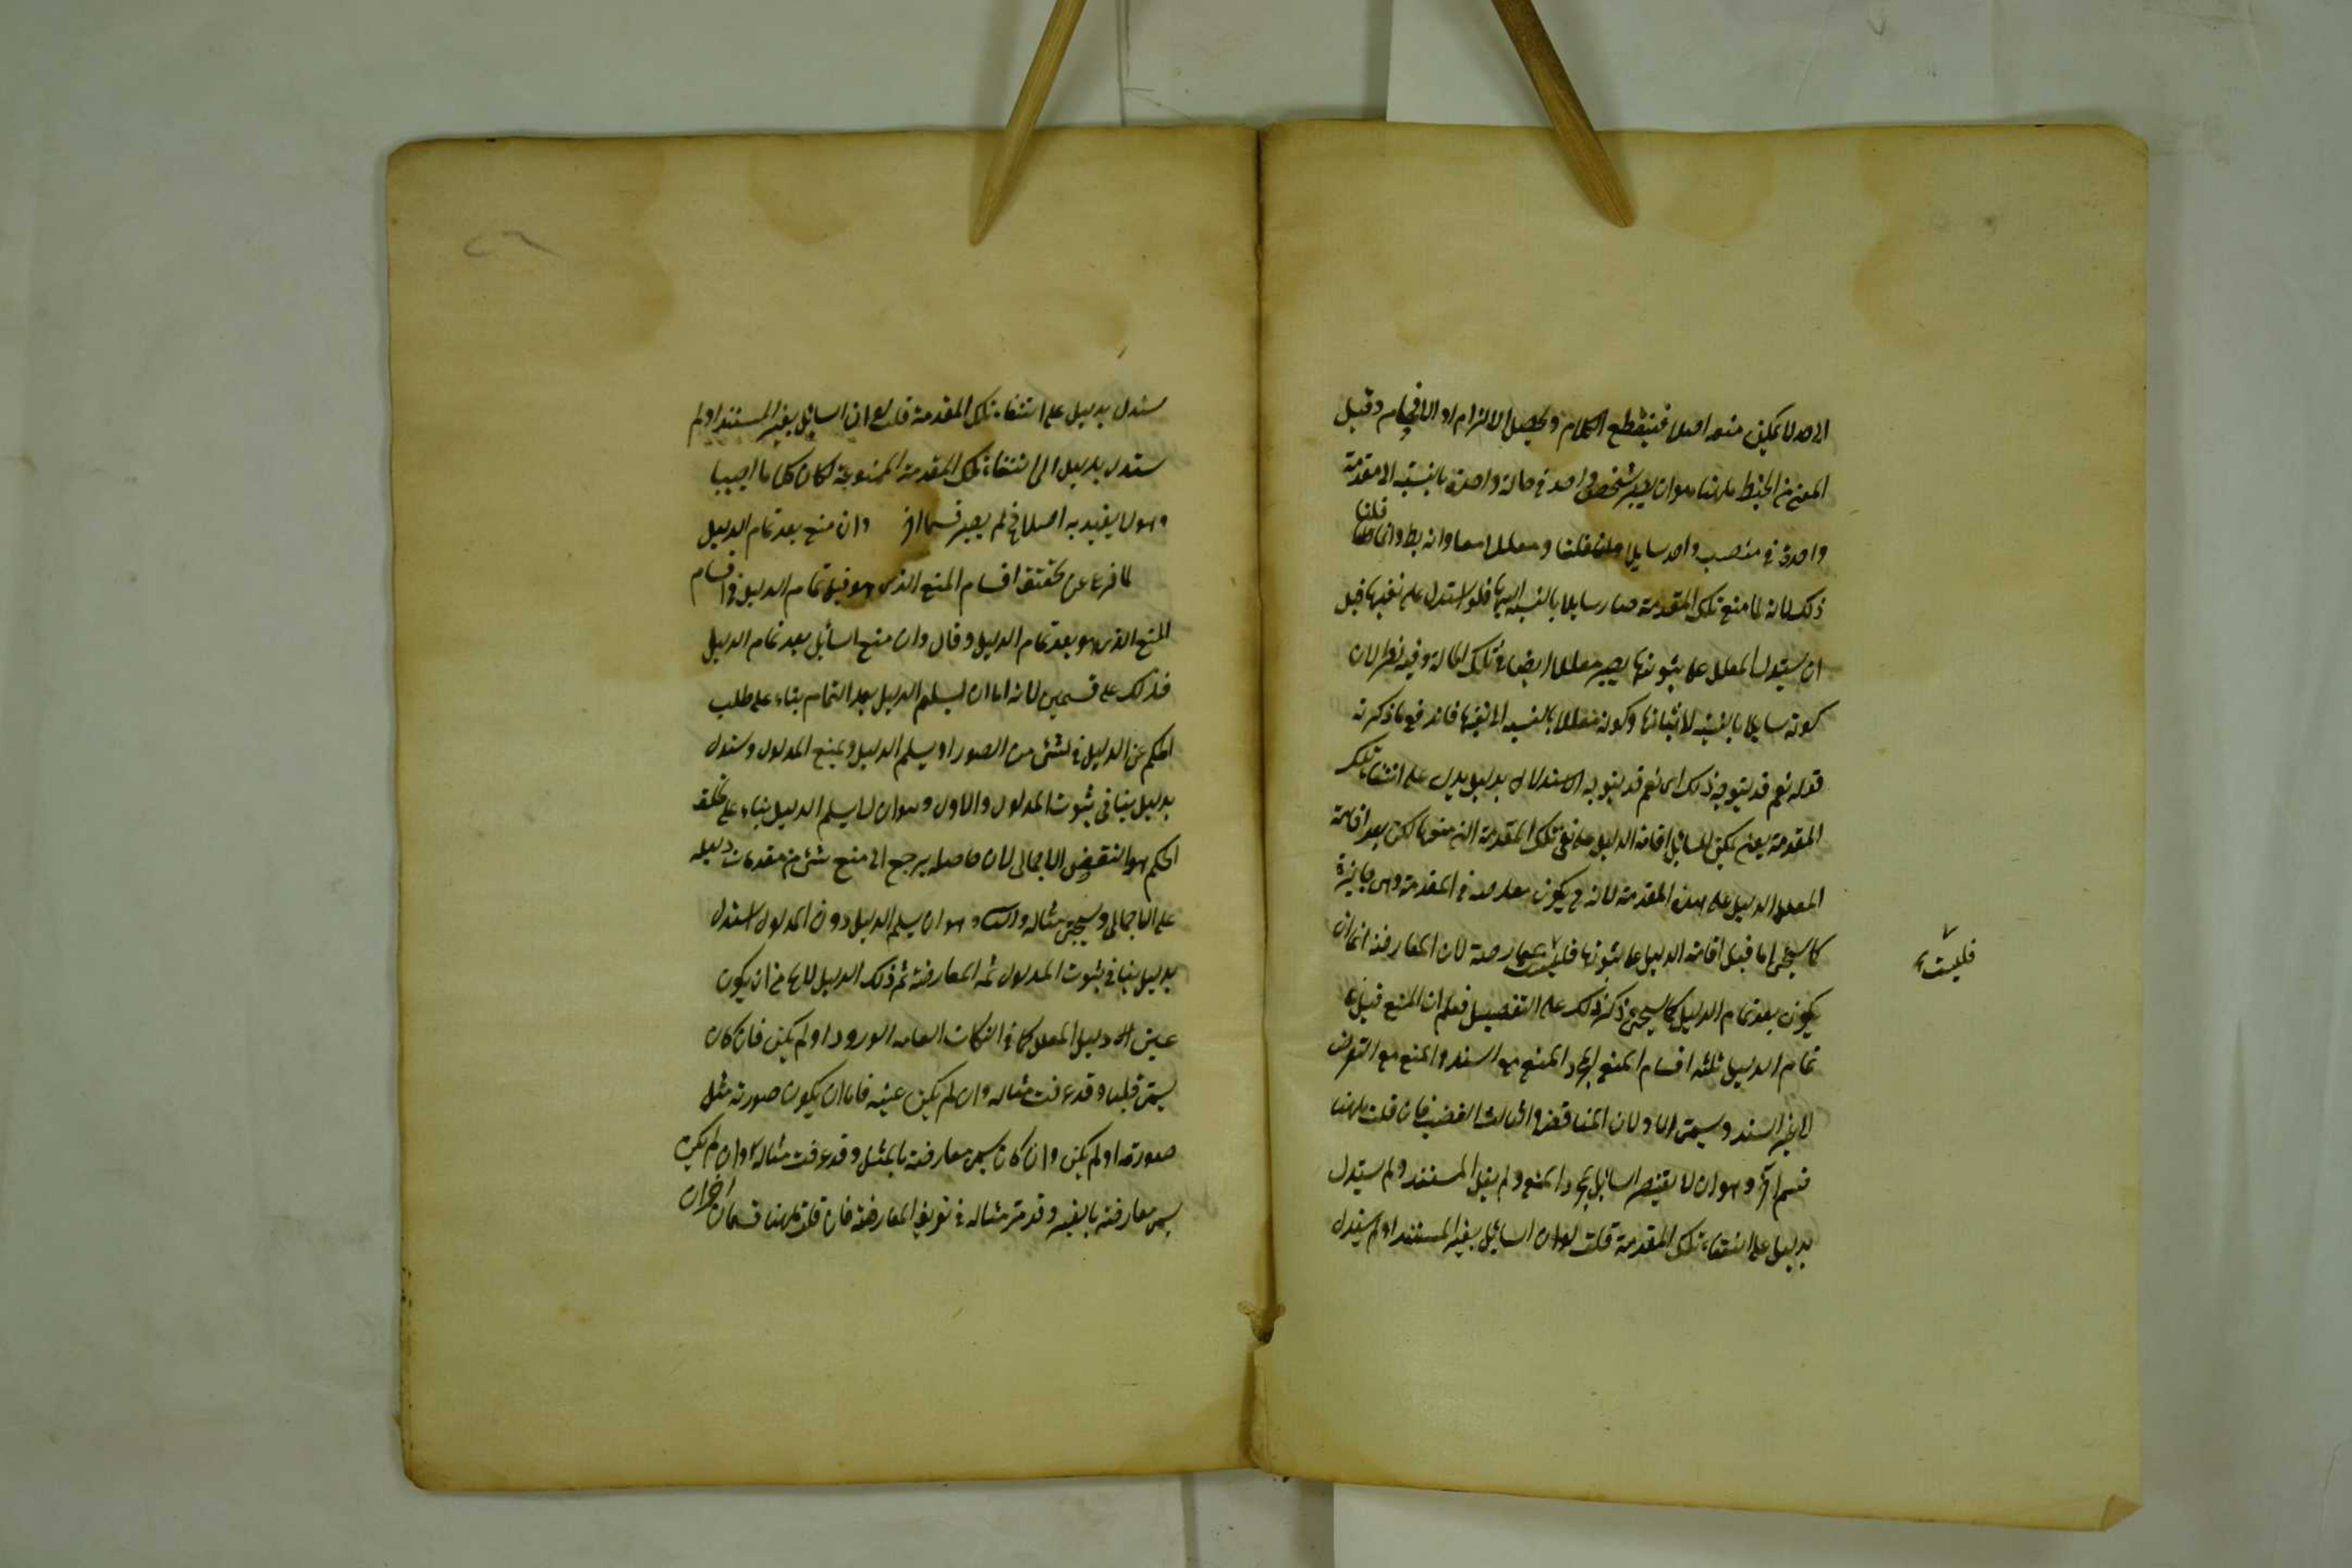 الى حد لا يمكن منعه اصلا فينقطع الكلام ويحصل الالزام او الافحام وقيل
المعنى من الخبط ههنا هو ان يصير شخص واحد في حالة واحدة بالنسبة الى مقدمة
واحدة في منصب واحد سايلا ومعللا معا وانه بط وانما قلنا
ذلك لانه لما منع تلك المقدمة صار سايلا بالنسبة اليها فلو استدل على نفيها قبل
ان يستدل المعلل على ثبوتها يصير معللا ايضا في تلك الحالة وفيه نظر لان
كونه سايلا بالنسبة لاثباتها وكونه معللا بالنسبة الى نفيها فاندفع ما ذكرته
قوله نعم قد يتوجه ذلك اى نعم قد يتوجه الاستدلال بدليل يدل على انتفاء تلك
المقدمة يعنى يمكن للسائل اقامة الدليل على نفى تلك المقدمة التى منعها لكن بعد اقامة
المعلل الدليل على هذه المقدمة لانه ح يكون معارضة في المقدمة وهى جايزة
كما سيجئ اما قبل اقامة الدليل على ثبوتها فليست بمعارضة لان المعارضة انما
يكون بعد تمام الدليل كما سيجئ ذكر ذلك على التفصيل فعلم ان المنع قبل
تمام الدليل ثلثة اقسام المنع المجرد والمنع مع السند والمنع مع التعرض
لا بغير السند ويسمى الاولان المناقضة والثالث الغصب فان قلت ههنا
قسم اخر وهو ان لا يقتصر السائل بمجرد المنع ولم يقل المستند ولم يستدل
بدليل على انتفاء تلك المقدمة قلت لو ان السايل بغير المستند او لم يستدل
فليست
يستدل بدليل على انتفاء تلك المقدمة قلت لو ان السايل بغير المستند او لم
يستدل بدليل الى انتفاء تلك المقدمة الممنوعة لكان كلاما اجنبيا
وهو لا يفيد به اصلا فح لم يصير قسما اخر وان منع بعد تمام الدليل
لما فرغ عن تحقيق اقسام المنع الذى هو قبل تمام الدليل في اقسام
المنع الذى هو بعد تمام الدليل وقال وان منع السائل بعد تمام الدليل
فذلك على قسمين لانه اما ان لا يسلم الدليل بعد التمام بناء على تخلف
الحكم عن الدليل في شئ من الصور او يسلم الدليل ويمنع المدلول ويستدل
بدليل ينافى ثبوت المدلول والاول وهو ان لا يسلم الدليل بناء على تخلف
الحكم هو النقض الاجمالى لان حاصله يرجع الى منع شئ من مقدمات دليله
على الاجمالى وسيجئ مثاله والثانى وهو ان يسلم الدليل دون المدلول استدل
بدليل ينافى ثبوت المدلول ثمه المعارضة ثم ذلك الدليل لا يخ من ان يكون
عين دليل المعلل كما في النكات العامه الورود او لم يكن فان كان
يسمى قلبا وقد عرفت مثاله وان لم يكن عينه فاما ان يكون صورته مثل
صورته او لم يكن وان كان يسمى معارضة بالمثل وقد عرفت مثاله وان لم يكن
يسمى معارضة بالغير وقد مر مثاله في تعريف المعارضة فان قلت ههنا قسمان اخران